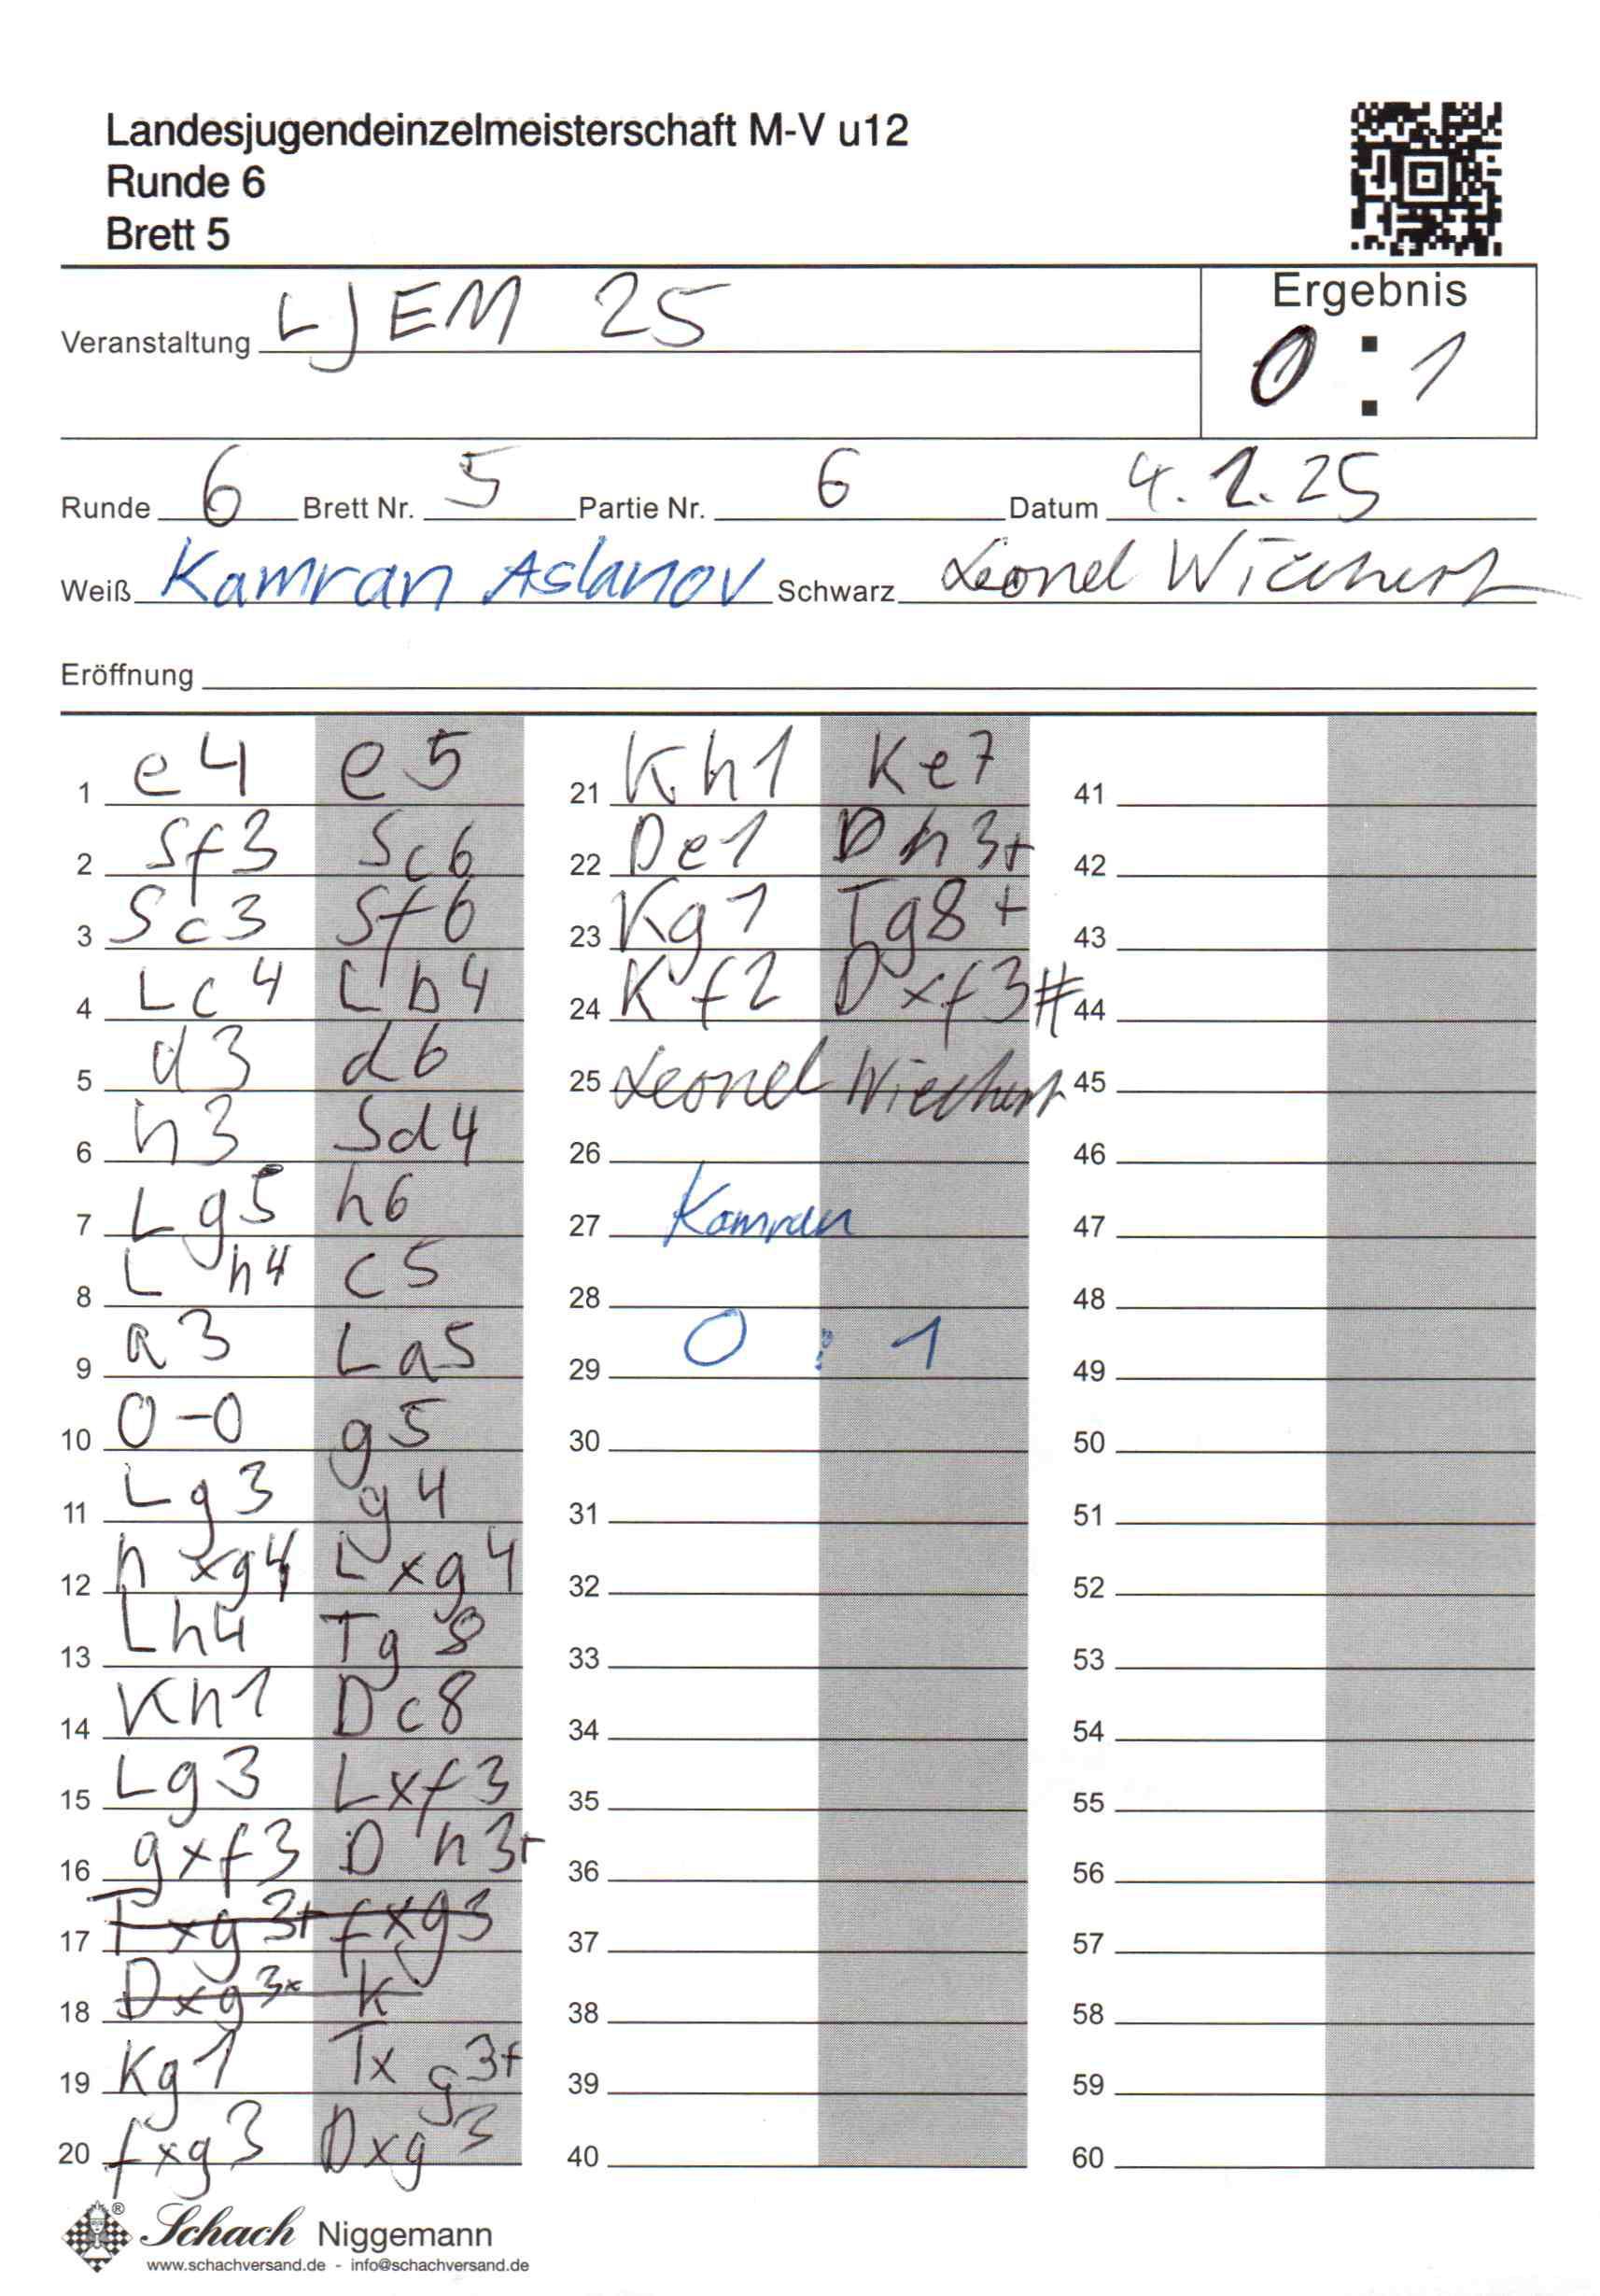 Landesjugendeinzelmeisterschaft M-V u12
Runde 6
Brett 5
Veranstaltung LJEM 25
Ergebnis
0 : 1
Runde 6 Brett Nr. 5 Partie Nr. 6 Datum 4.2.25
Weiß Kamran Aslanov Schwarz Leonel Wiechert
Eröffnung
1 e4 e5 21 Kh1 Ke7 41
2 Sf3 Sc6 22 De1 Dh3+ 42
3 Sc3 Sf6 23 Kg1 Tg8+ 43
4 Lc4 Lb4 24 Kf2 Dxf3# 44
5 d3 d6 25 Leonel Wiechert 45
6 h3 Sd4 26 46
7 Lg5 h6 27 Kamran 47
8 Lh4 c5 28 48
9 a3 La5 29 0 : 1 49
10 0-0 g5 30 50
11 Lg3 g4 31 51
12 hxg4 Lxg4 32 52
13 Lh4 Tg8 33 53
14 Kh1 Dc8 34 54
15 Lg3 Lxf3 35 55
16 gxf3 Dh3+ 36 56
17 Txg3+ fxg3 37 57
18 Dxg3x K 38 58
19 Kg1 Txg3+ 39 59
20 fxg3 Dxg3 40 60
Schach Niggemann
www.schachversand.de - info@schachversand.de